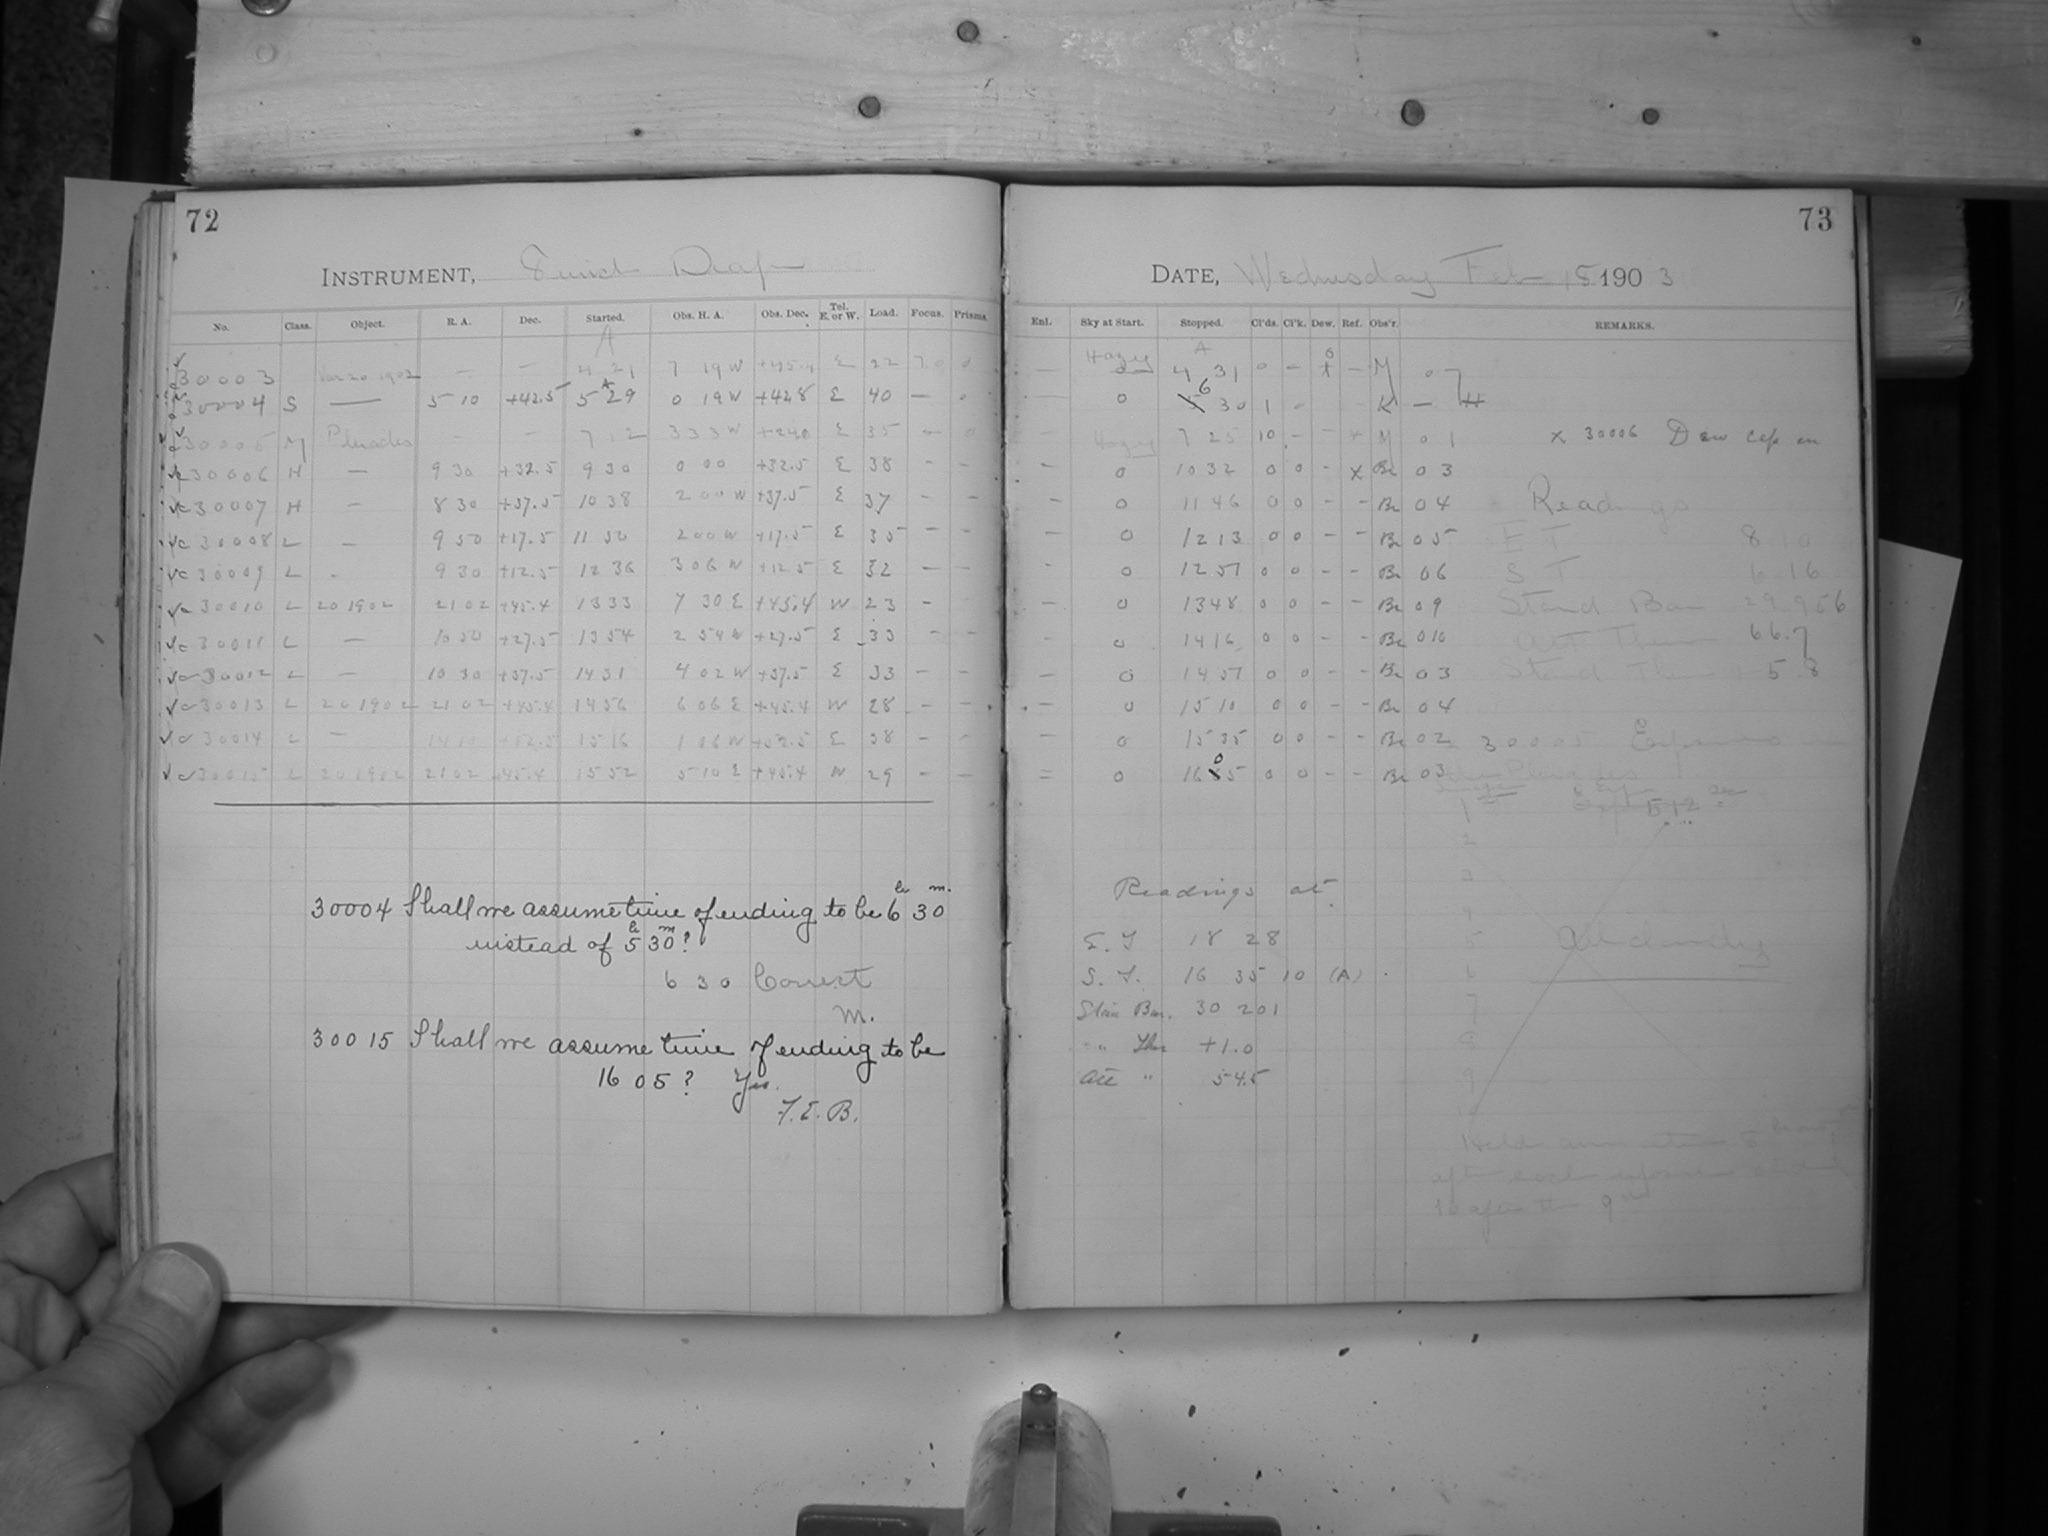 72
INSTRUMENT, 8 inch Drap
No. Class. Object. R. A. Dec. Started. Obs. H. A. Obs. Dec. Tel. E. or W. Load. Focus. Prisms.
A
30003 Var 20 1902 — — 4 21 7 19 W +45.4 E 22 7.0 0
30004 S — 5 10 +42.5 5 29 0 19 W +42.8 E 40 — 0
30005 M Pleiades — — 7 12 3 33 W +24.0 E 35 — 0
30006 H — 9 30 +32.5 9 30 0 00 +32.5 E 38 — —
30007 H — 8 30 +37.5 10 38 2 00 W +37.5 E 37 — —
30008 L — 9 50 +17.5 11 50 2 00 W +17.5 E 35 — —
30009 L - 9 30 +12.5 12 36 3 06 W +12.5 E 32 — —
30010 L 20 1902 21 02 +45.4 13 33 7 30 E +45.4 W 23 —
30011 L — 10 50 +27.5 13 54 2 54 W +27.5 E 33 — —
30012 L — 10 30 +37.5 14 31 4 02 W +37.5 E 33 — —
30013 L 20 1902 21 02 +45.4 14 56 6 06 E +45.4 W 28 — —
30014 L — 14 10 +52.5 15 16 1 06 W +52.5 E 38 — —
30015 L 20 1902 21 02 +45.4 15 52 5 10 E +45.4 W 29 — —
30004 Shall we assume time of ending to be 6 h 30 m.
instead of 5 h 30 m?
6 30 Correct
M.
30015 Shall we assume time of ending to be
16 05? Yes.
F. E. B.
73
DATE, Wednesday Feb 18 1903
Enl. Sky at Start. Stopped. Cl'ds. Cl'k. Dew. Ref. Obs'r. REMARKS.
A
— Hazy 4 31 0 — — M 07
0 6 30 1 - K —
— Hazy 7 25 10 - - M 01 x 30006 Dew cap on
- 0 10 32 0 0 - x Br 03
- 0 11 46 0 0 - - Br 04 Readings
— 0 12 13 0 0 - - Br 05 E T 8 10
- 0 12 51 0 0 - - Br 06 S T 6 16
— 0 13 48 0 0 - - Br 09 Stand Bar 29.956
- 0 14 16 0 0 - - Br 010 Att Ther 66.7
— 0 14 51 0 0 - - Br 03 Stand Ther 5.8
— 0 15 10 0 0 - - Br 04
- 0 15 35 0 0 - - Br 02 30005 Exposures
= 0 16 05 0 0 - - Br 03 Pleiades
1 512
2
3
4
5 All cloudy
6
7
8
9
10
Readings at
E. T 18 28
S. T. 16 35 10 (A)
Stan Bar. 30 201
" Ther +1.0
Att " 54.5
after each exposure and
10 after the 9th